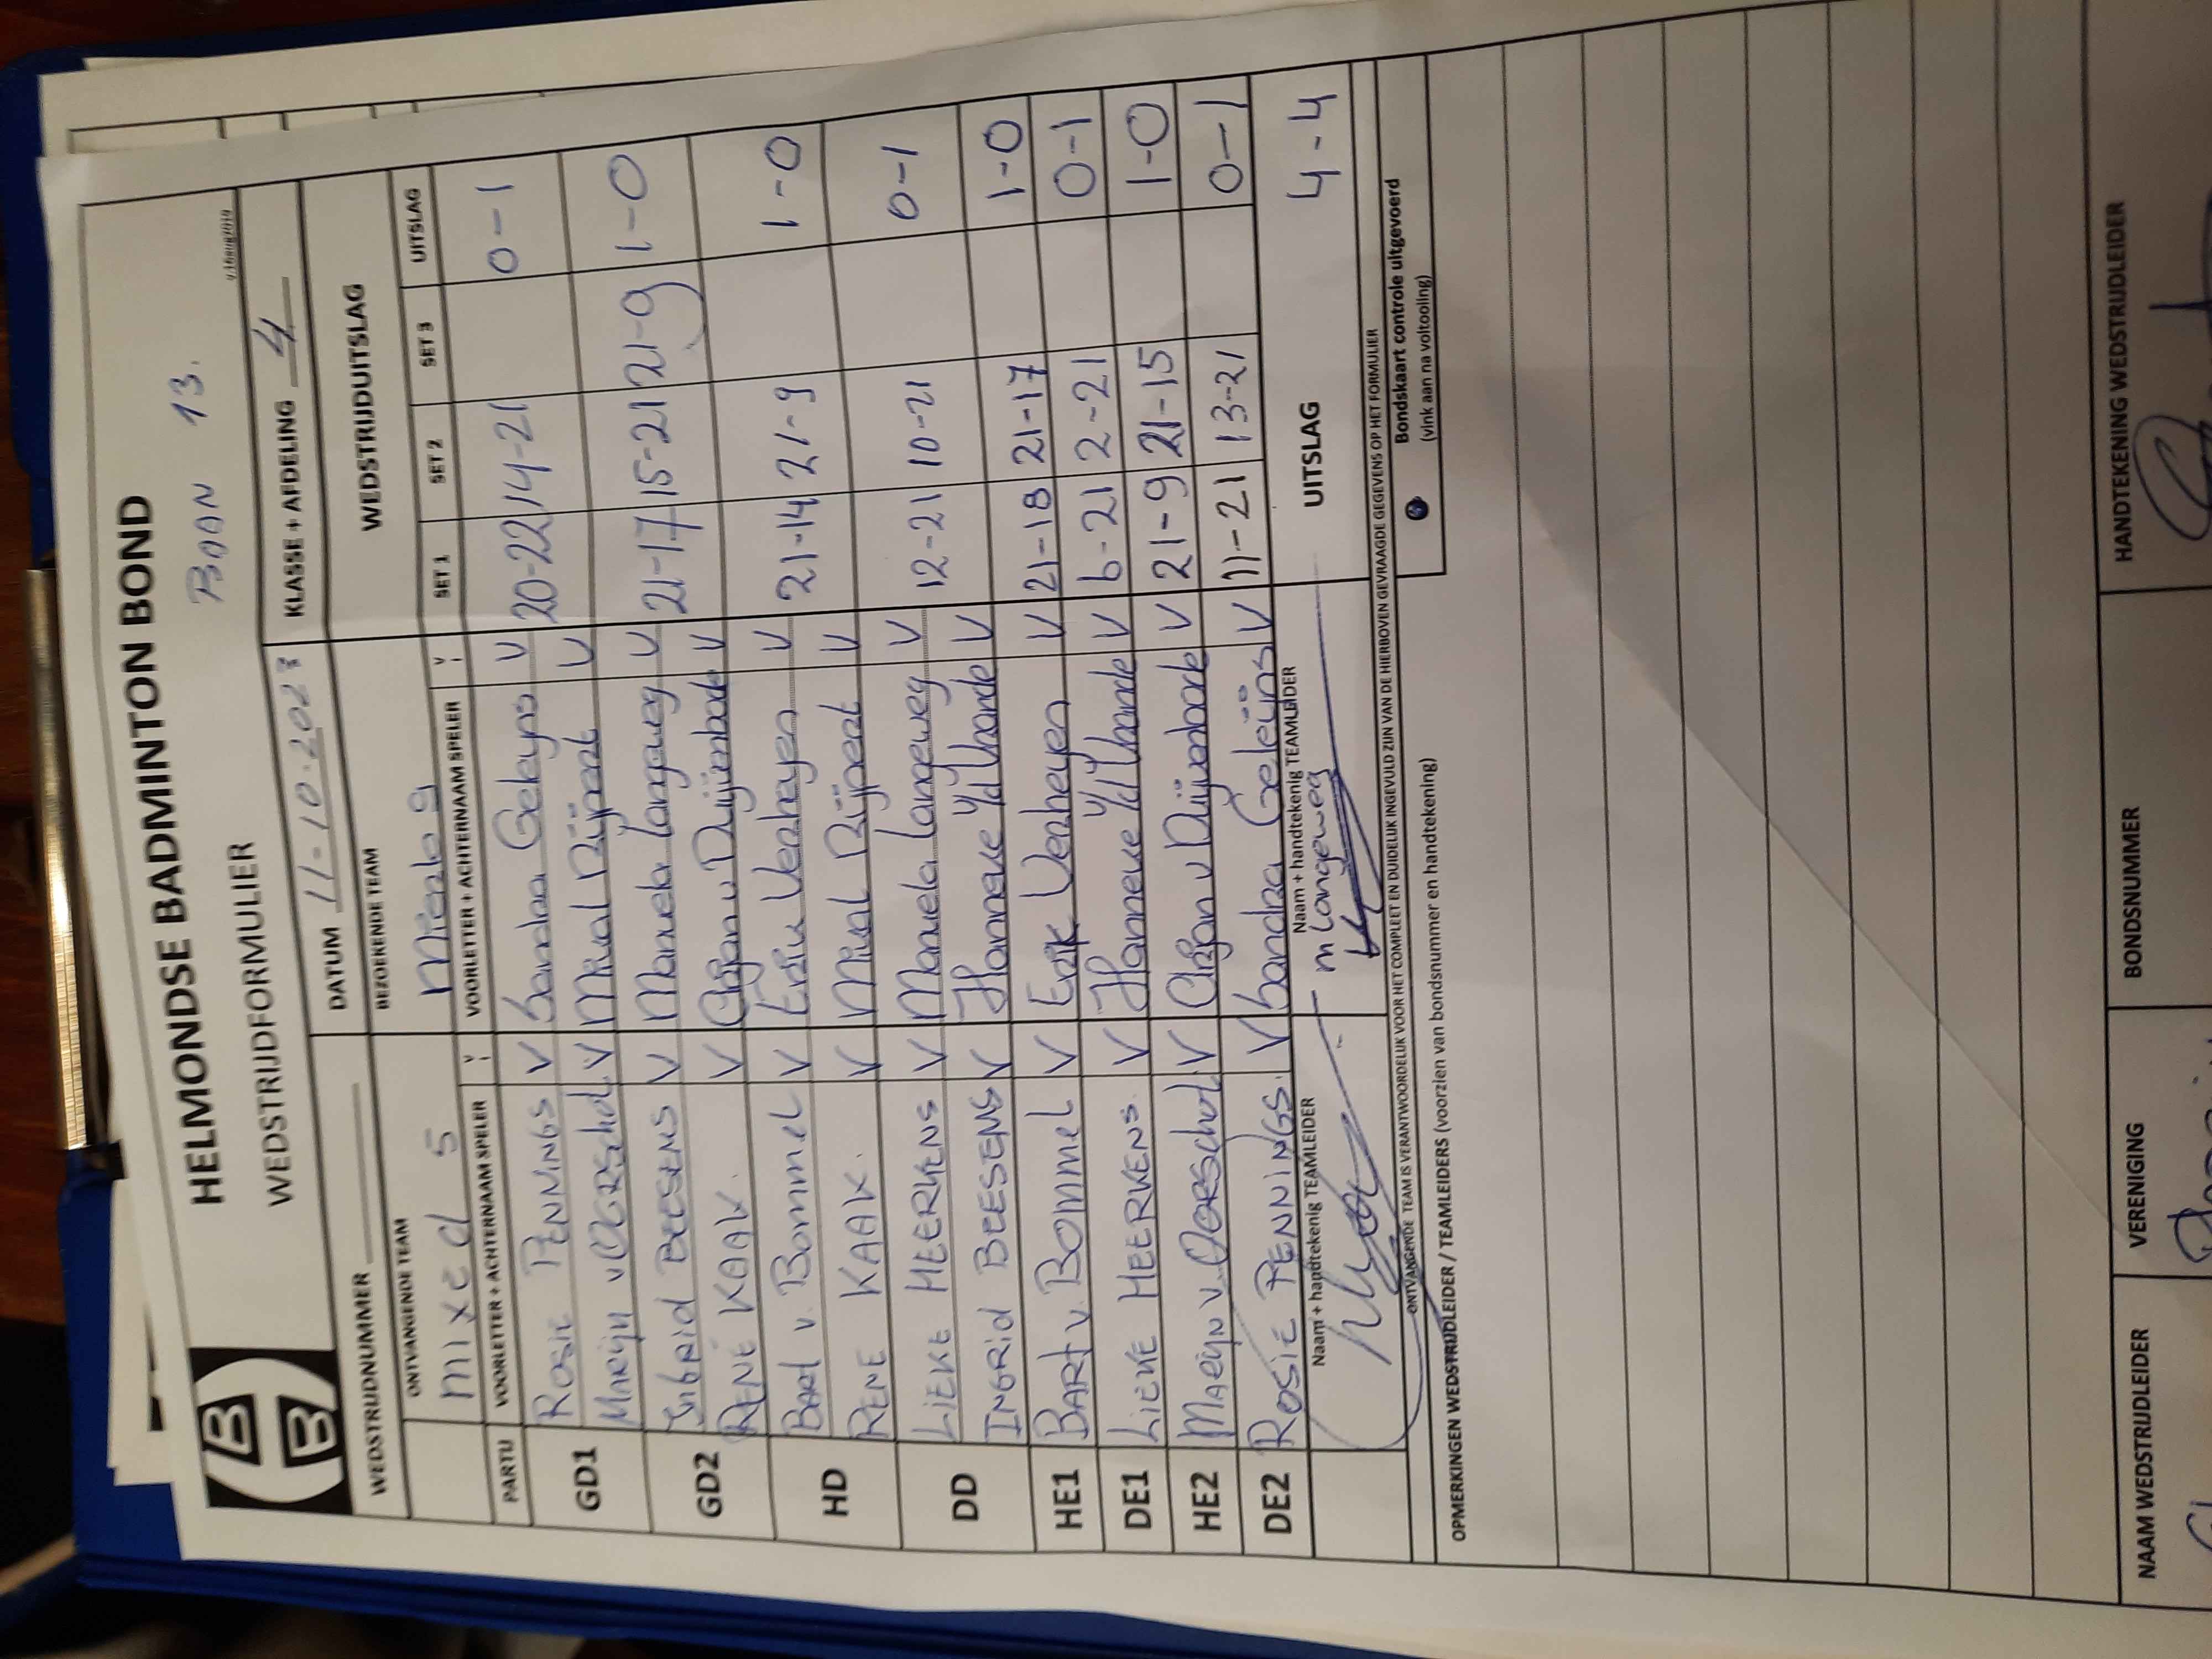 HELMONDSE BADMINTON BOND
WEDSTRIJDFORMULIER
BAAN 13.
v.16aug2019
WEDSTRIJDNUMMER
DATUM 11-10-2023
KLASSE + AFDELING 4
ONTVANGENDE TEAM
BEZOEKENDE TEAM
WEDSTRIJDUITSLAG
mixed 5
Mierlo 9
PARTIJ VOORLETTER + ACHTERNAAM SPELER V VOORLETTER + ACHTERNAAM SPELER V SET 1 SET 2 SET 3 UITSLAG
GD1 Rosie PENNINGS V Sandra Geleijns V 20-22 14-21 0-1
Marijn v Oorschot V V
GD2 Ingrid BEESENS V Manuela Langeweg V 21-17 15-21 21-9 1-0
RENE KAAK. V Arjan v Duijnhoven V
HD Bart v. Bommel V Erik Verheyen V 21-14 21-9 1-0
RENE KAAK. V V
DD LIEKE HEERKENS V Manuela Langeweg V 12-21 10-21 0-1
INGRID BEESENS V Hanneke V
HE1 BART v. BOMMEL V Erik Verheyen V 21-18 21-17 1-0
DE1 LIEKE HEERKENS. V Hanneke V 6-21 2-21 0-1
HE2 MARIJN v. Oorschot V Arjan v V 21-9 21-15 1-0
DE2 ROSIE PENNINGS. V Sandra Geleijns V 11-21 13-21 0-1
Naam + handtekenig TEAMLEIDER
Naam + handtekenig TEAMLEIDER
m Langeweg
UITSLAG 4-4
ONTVANGENDE TEAM IS VERANTWOORDELIJK VOOR HET COMPLEET EN DUIDELIJK INGEVULD ZIJN VAN DE HIERBOVEN GEVRAAGDE GEGEVENS OP HET FORMULIER
Bondskaart controle uitgevoerd
(vink aan na voltooiing)
OPMERKINGEN WEDSTRIJDLEIDER / TEAMLEIDERS (voorzien van bondsnummer en handtekening)
NAAM WEDSTRIJDLEIDER VERENIGING BONDSNUMMER HANDTEKENING WEDSTRIJDLEIDER